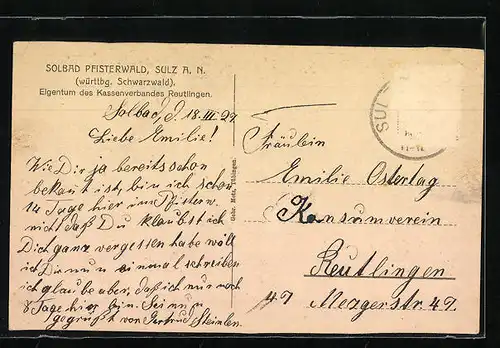 SOLBAD PFISTERWALD, SULZ A. N.
(württbg. Schwarzwald).
Eigentum des Kassenverbandes Reutlingen.
Solbad, d. 18. III. 27.
Liebe Emilie!
Wie Dir ja bereits schon
bekant ist, bin ich schon
14 Tage hier im Pfisterw.
nicht daß Du klaubst ich
Dich ganz vergessen habe will
ich Dir nun einmal schreiben
ich glaube aber, daß ich nur noch
8 Tage hier bin. Sei nun
gegrüßt von Gertrud Steimlen.
Gebr. Metz, Tübingen.
SUL
Fräulein
Emilie Ostertag
Konsumverein
Reutlingen
47 Mezgerstr. 47.